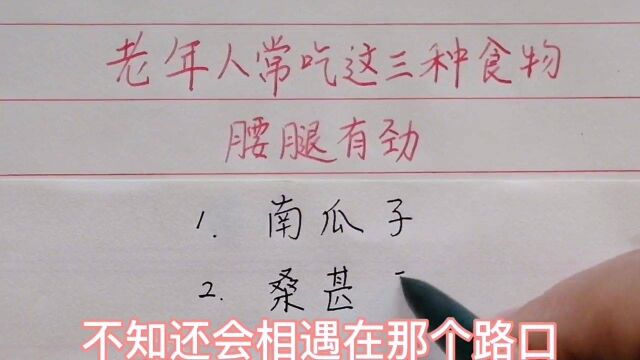 老年人常吃这三种食物
腰腿有劲
1. 南瓜子
2. 桑甚
不知还会相遇在那个路口